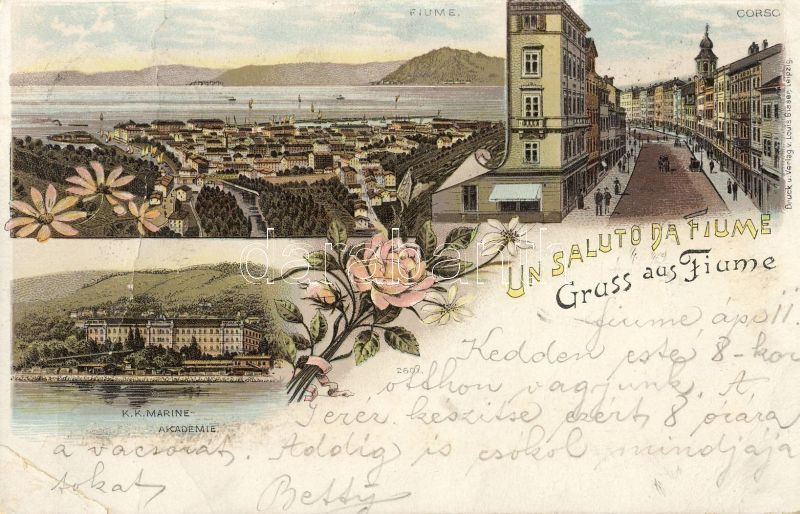 FIUME.
CORSO
Druck u. Verlag v. Louis Glaser, Leipzig.
UN SALUTO DA FIUME
Gruss aus Fiume
K.K. MARINE-
AKADEMIE.
2607.
Fiume ápr 11.
Kedden este 8-kor
otthon vagyunk. A
Teréz készitse ezért 8 órára
a vacsorát. Addig is csókol mindjája
tokat Betty
darabanth